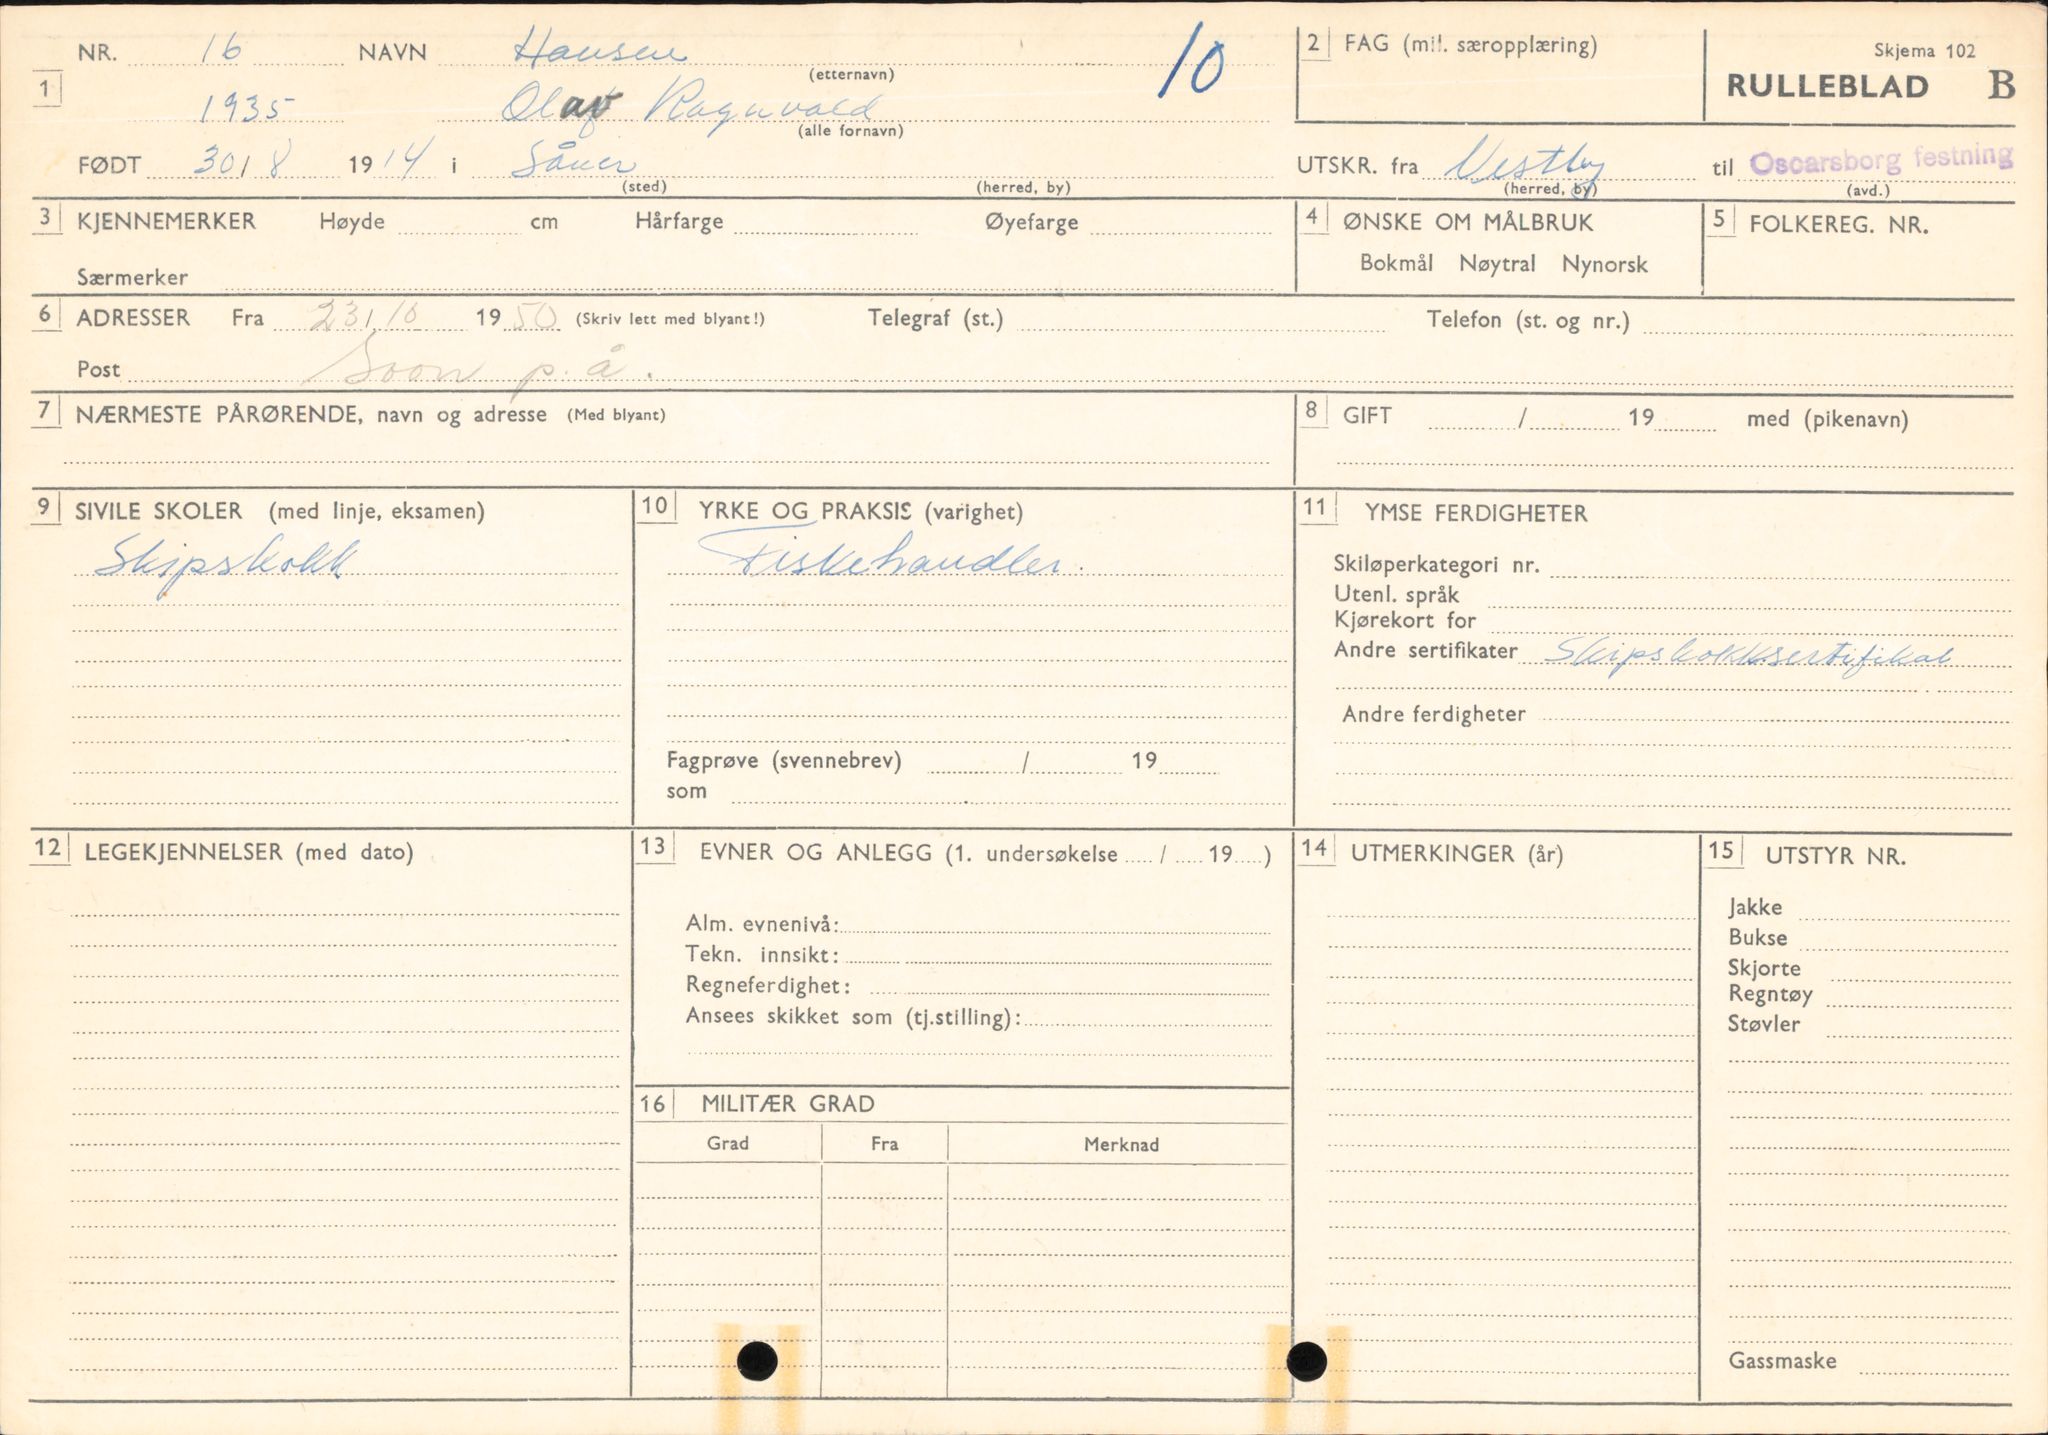 NR. 16 NAVN Hansen 10
(etternavn)
1
1935 Olav Ragnvald
(alle fornavn)
FØDT 30/8 1914 i Såner
(sted) (herred, by)
2 FAG (mil. særopplæring)
Skjema 102
RULLEBLAD B
UTSKR. fra Vestby til Oscarsborg festning
(herred, by) (avd.)
3 KJENNEMERKER Høyde cm Hårfarge Øyefarge
Særmerker
4 ØNSKE OM MÅLBRUK
Bokmål Nøytral Nynorsk
5 FOLKEREG. NR.
6 ADRESSER Fra 23/10 1950 (Skriv lett med blyant!) Telegraf (st.) Telefon (st. og nr.)
Post Soon p. å.
7 NÆRMESTE PÅRØRENDE, navn og adresse (Med blyant)
8 GIFT / 19 med (pikenavn)
9 SIVILE SKOLER (med linje, eksamen)
Skipskokk
10 YRKE OG PRAKSIS (varighet)
Fiskehandler.
Fagprøve (svennebrev) / 19
som
11 YMSE FERDIGHETER
Skiløperkategori nr.
Utenl. språk
Kjørekort for
Andre sertifikater Skipskokksertifikat
Andre ferdigheter
12 LEGEKJENNELSER (med dato)
13 EVNER OG ANLEGG (1. undersøkelse / 19 )
Alm. evnenivå:
Tekn. innsikt:
Regneferdighet:
Ansees skikket som (tj.stilling):
14 UTMERKINGER (år)
15 UTSTYR NR.
Jakke
Bukse
Skjorte
Regntøy
Støvler
Gassmaske
16 MILITÆR GRAD
Grad Fra Merknad